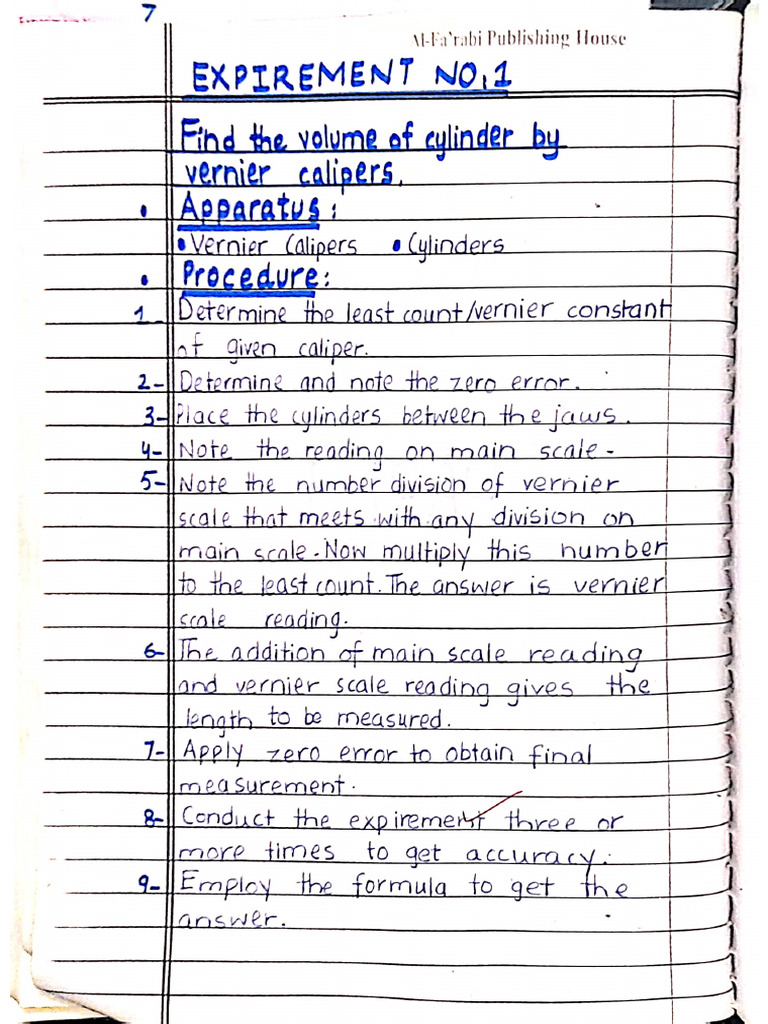 7
Al-Fa'rabi Publishing House
EXPIREMENT NO:1
Find the volume of cylinder by
vernier calipers.
• Apparatus:
• Vernier Calipers • Cylinders
• Procedure:
1_ Determine the least count/vernier constant
of given caliper.
2- Determine and note the zero error.
3- Place the cylinders between the jaws.
4- Note the reading on main scale-
5- Note the number division of vernier
scale that meets with any division on
main scale. Now multiply this number
to the least count. The answer is vernier
scale reading.
6- The addition of main scale reading
and vernier scale reading gives the
length to be measured.
7- Apply zero error to obtain final
measurement.
8- Conduct the expirement three or
more times to get accuracy.
9- Employ the formula to get the
answer.